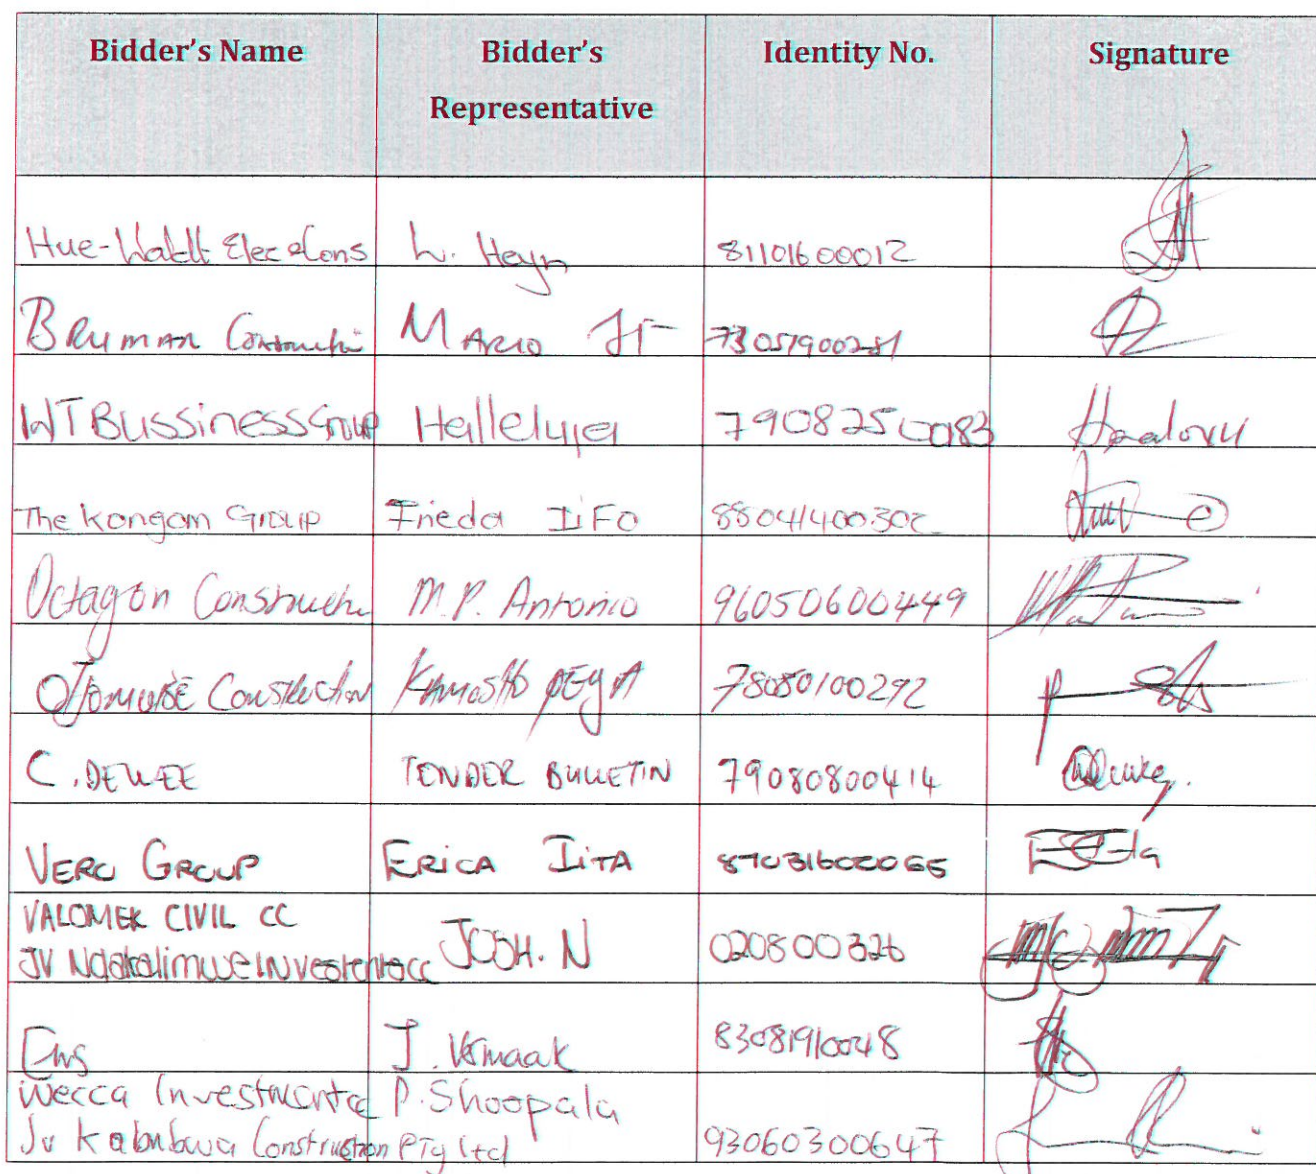 Bidder's Name Bidder's Representative Identity No. Signature
Hue-Waldt Elec & Cons L. Heyn 81101600012
BRUMAN Construchi MARIO 73051900281
WTBUSSINESS GROUP Halleluja 79082500183
The Kongom Group Frieda IiFO 88041400302
Octagon Construchi M.P. Antonio 96050600449
CONSTRUCTION 78080100292
C. DEWEE TENDER BULLETIN 79080800414
VERO GROUP ERICA IITA 87031600065
VALOMEK CIVIL CC
JV Ndakalimwe Investent cc JOSH. N 020800326
J. Vermaak 83081910048
Wecca Investment cc P. Shoopala
Jv Kabubwa Construction PTy Ltd 93060300647